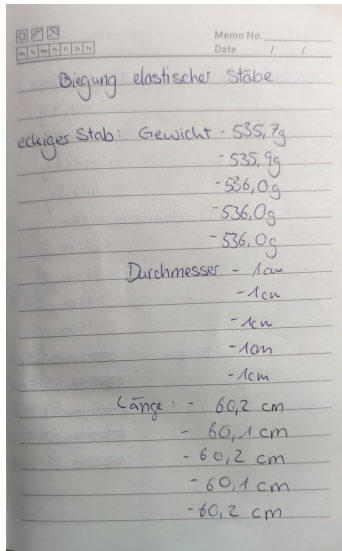 Memo No.
Mo Tu We Th Fr Sa Su
Date / /
Biegung elastischer Stäbe
eckiges Stab: Gewicht - 535,7g
- 535,9g
- 536,0g
- 536,0g
- 536,0g
Durchmesser - 1cm
- 1cm
- 1cm
- 1cm
- 1cm
Länge: - 60,2 cm
- 60,1 cm
- 60,2 cm
- 60,1 cm
- 60,2 cm